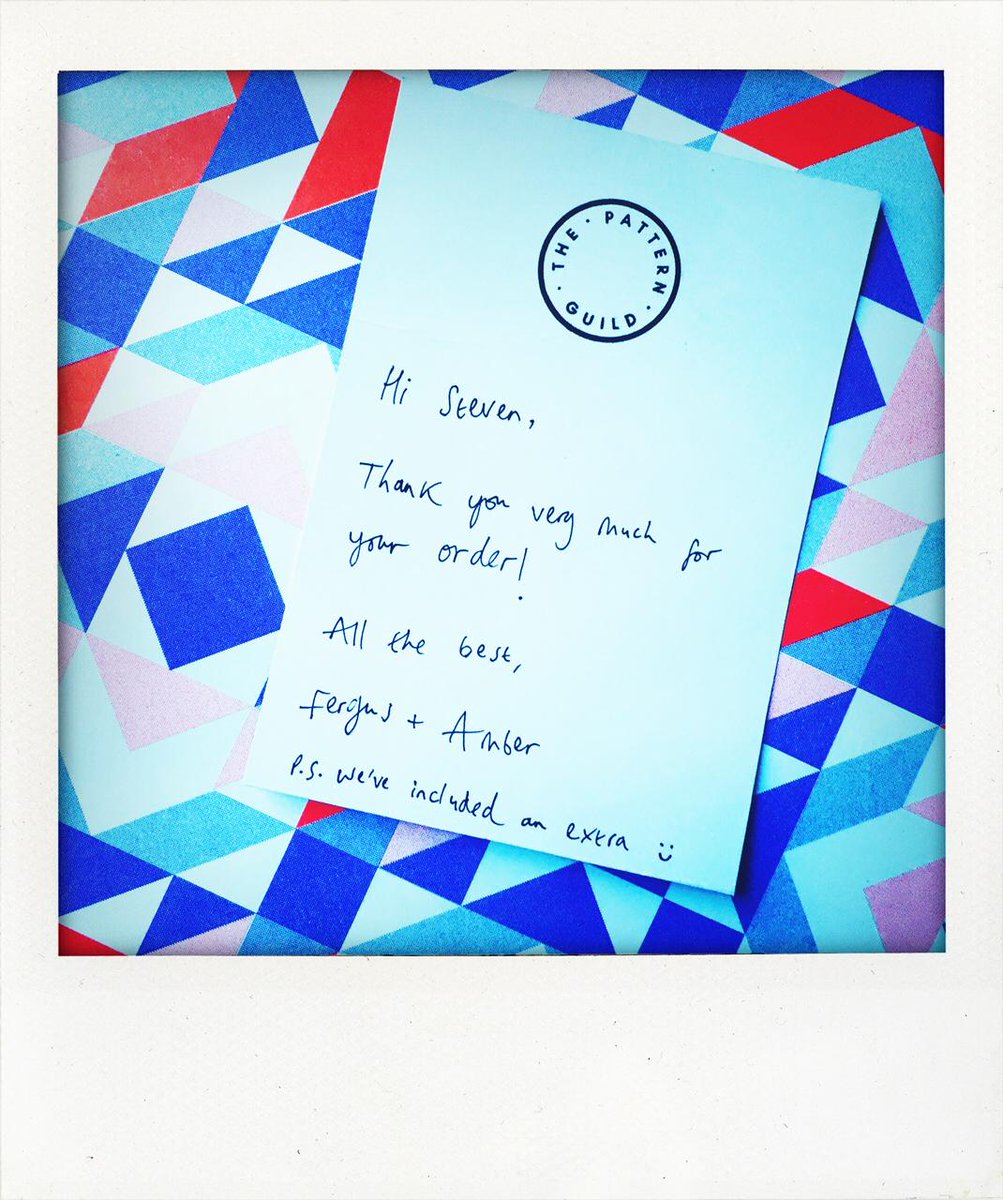 · THE · PATTERN · GUILD
Hi Steven,
Thank you very much for
your order!
All the best,
Fergus + Amber
P.S. we've included an extra :)